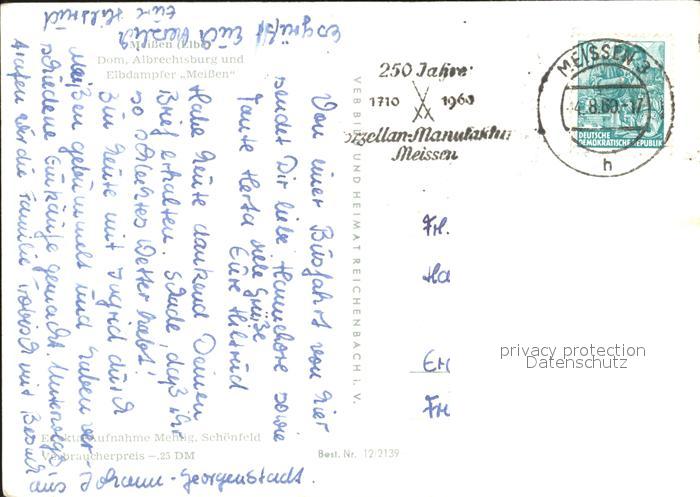 Meißen (Elbe)
Dom, Albrechtsburg und
Elbdampfer „Meißen"
250 Jahre
1710 1960
Porzellan-Manufaktur
Meissen
MEISSEN 3
4.8.60-17
h
DEUTSCHE
DEMOKRATISCHE REPUBLIK
VEB BILD UND HEIMAT REICHENBACH i. V.
Von einer Busfahrt von hier
sendet Dir liebe Hannelore sowie
Tante Herta viele Grüße
Eure Hilstrud
Habe heute dankend Deinen
Brief erhalten. Schade, daß ihr
so schlechtes Wetter habt!
Bin heute mit Ingrid durch
Meißen gebummelt und haben ver-
schiedene Einkäufe gemacht. Unterwegs
trafen wir die Familie mit Besuch
aus Johann-Georgenstadt.
Es grüßt Euch herzlich
Eure Hilstrud
Fr.
Ha
Er
Fr
privacy protection
Datenschutz
Echte Aufnahme Mehlig, Schönfeld
Verbraucherpreis —.25 DM
Best. Nr. 12/2139